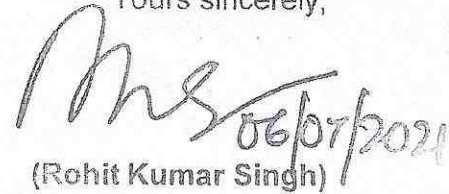 Yours sincerely,
06/07/2021
(Rohit Kumar Singh)